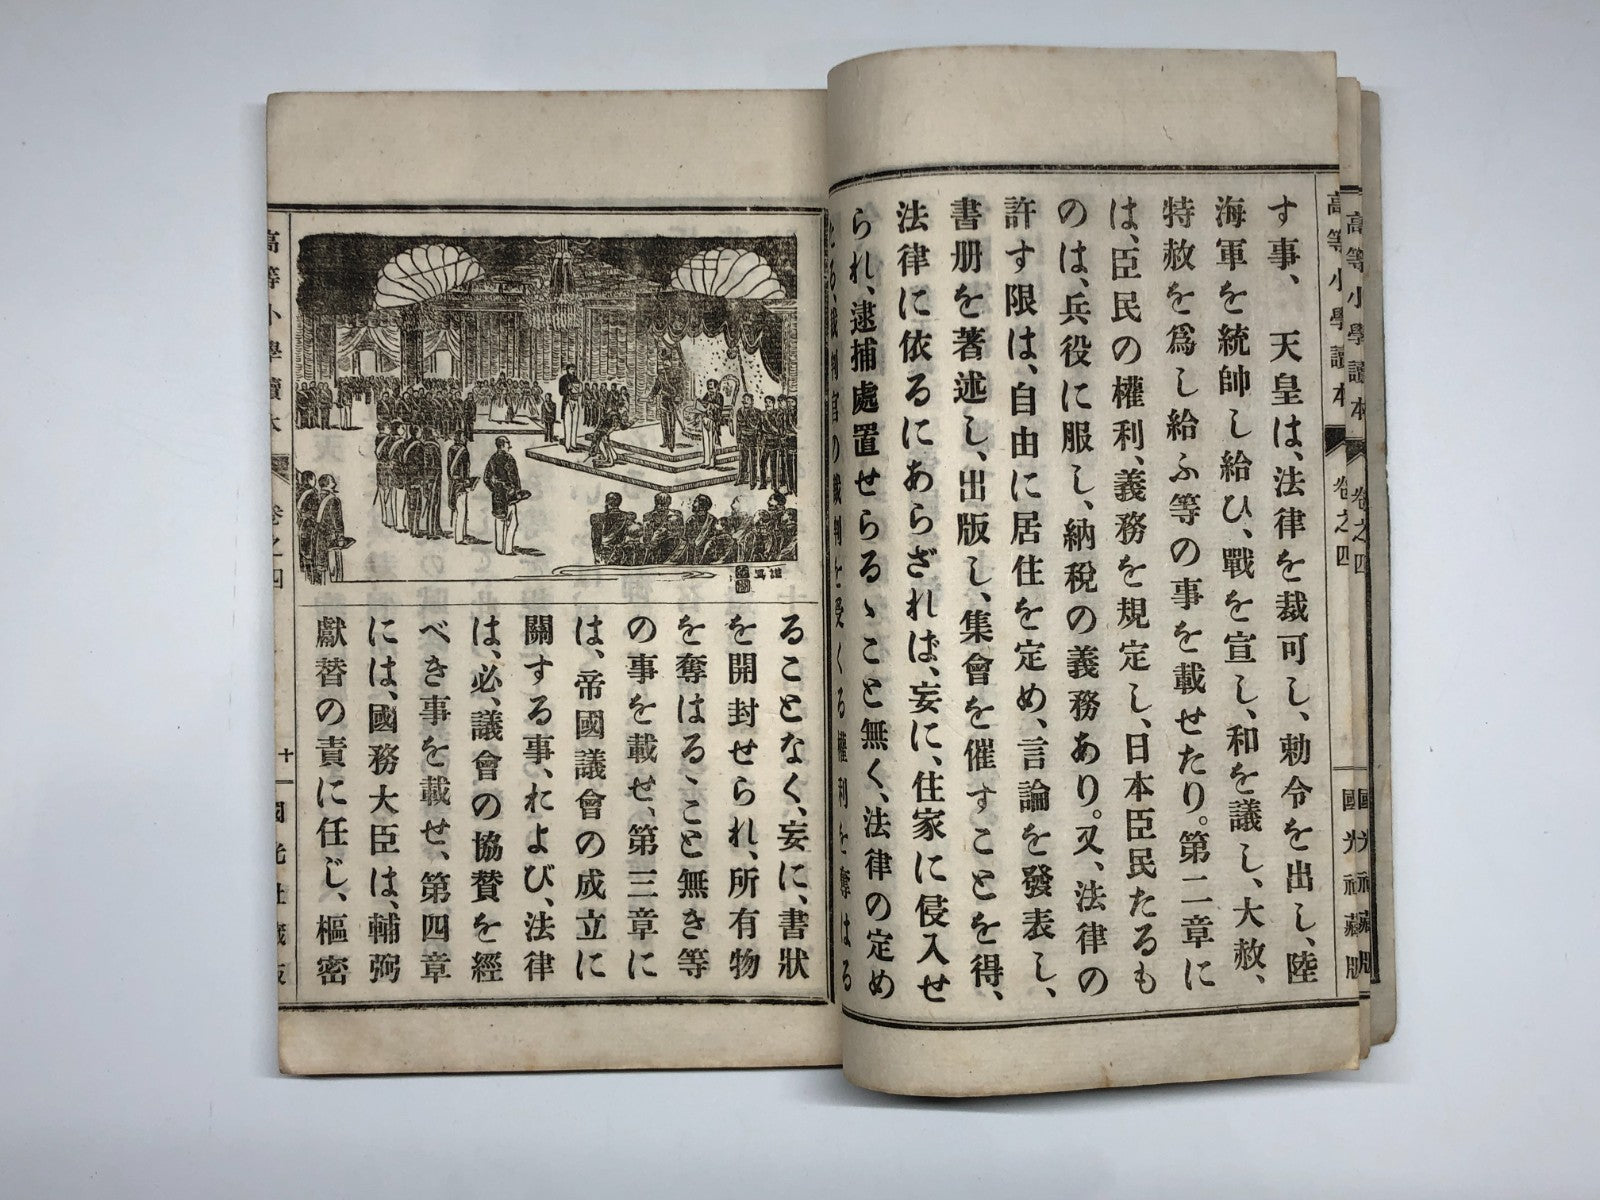 す事、天皇は、法律を裁可し、勅令を出し、陸
海軍を統帥し給ひ、戰を宣し、和を議し、大赦、
特赦を爲し給ふ等の事を載せたり。第二章に
は、臣民の權利、義務を規定し、日本臣民たるも
のは、兵役に服し、納税の義務あり。又、法律の
許す限は、自由に居住を定め、言論を發表し、
書册を著述し、出版し、集會を催すことを得、
法律に依るにあらざれば、妄に、住家に侵入せ
られ、逮捕處置せらるゝこと無く、法律の定め
たる、裁判官の裁判を受くる權利を奪はる
高等小學讀本
卷之四
國光社藏版
高等小學讀本
卷之四
國光社藏版
ることなく、妄に、書狀
を開封せられ、所有物
を奪はるゝこと無き等
の事を載せ、第三章に
は、帝國議會の成立に
關する事、および、法律
は、必、議會の協賛を經
べき事を載せ、第四章
には、國務大臣は、輔弼
獻替の責に任じ、樞密
高等小學讀本
卷之四
十
國光社藏版